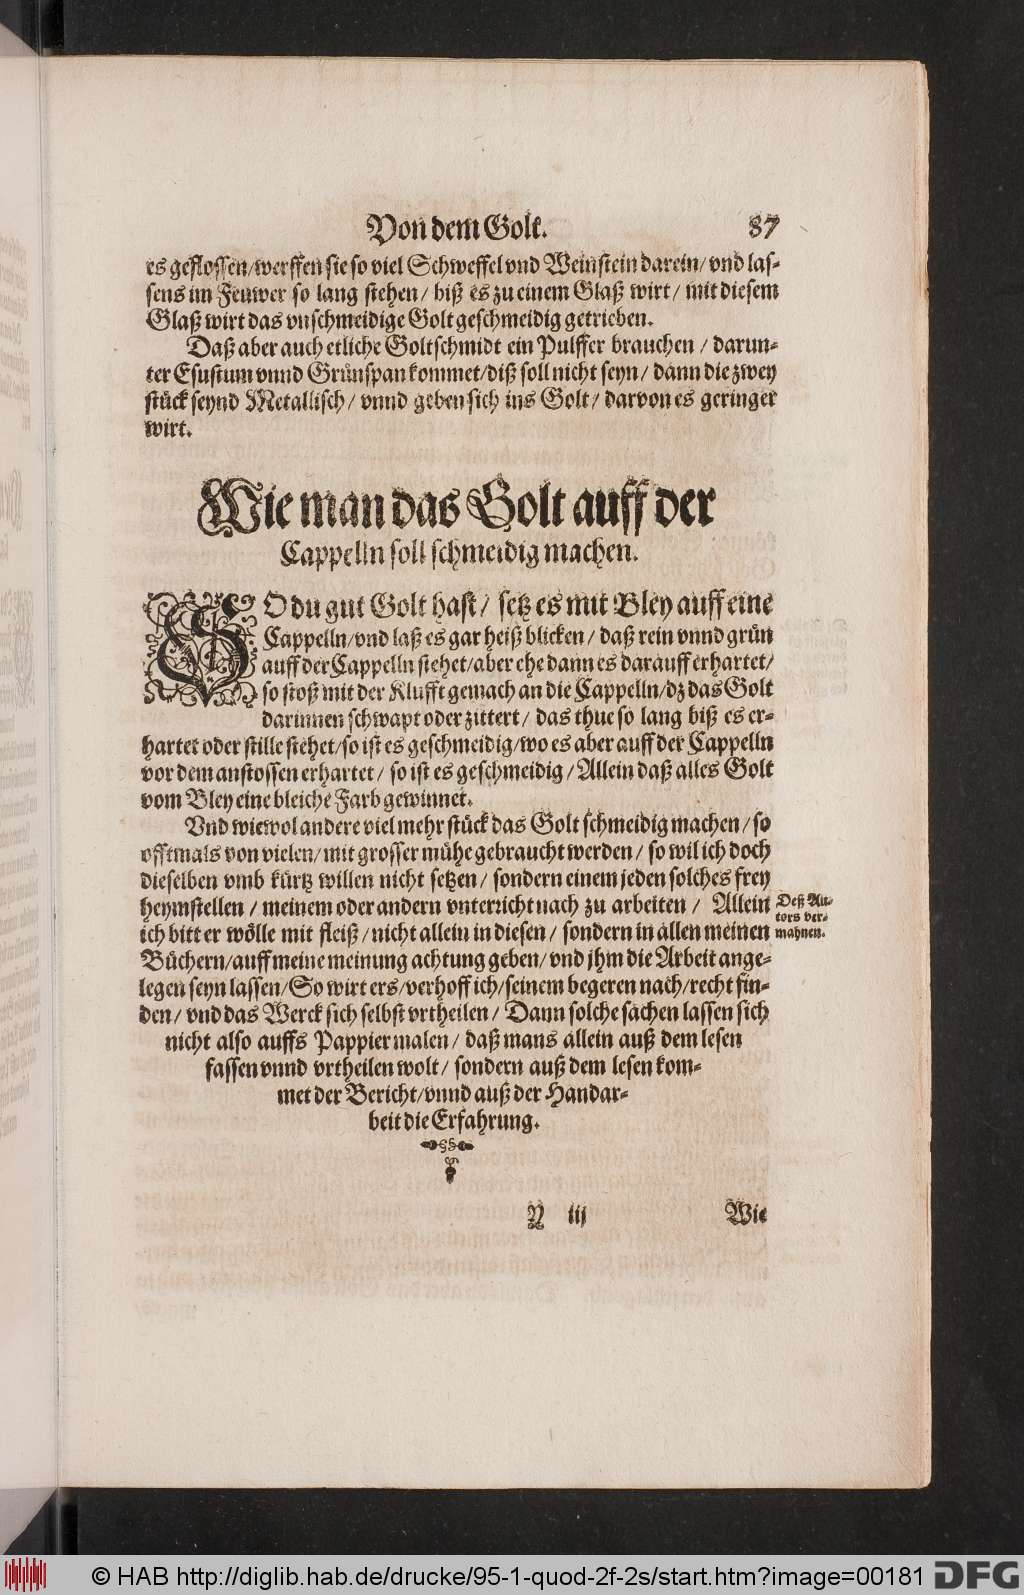 Von dem Golt. 87
es geflossen/werffen sie so viel Schweffel vnd Weinstein darein/ vnd las-
sens im Feuwer so lang stehen / biß es zu einem Glaß wirt / mit diesem
Glaß wirt das vnschmeidige Golt geschmeidig getrieben.
Daß aber auch etliche Goltschmidt ein Pulffer brauchen / darun-
ter Esustum vnnd Grůnspan kommet/diß soll nicht seyn / dann die zwey
stůck seynd Metallisch / vnnd geben sich ins Golt / darvon es geringer
wirt.
Wie man das Golt auff der
Cappelln soll schmeidig machen.
SO du gut Golt hast / setz es mit Bley auff eine
Cappelln/vnd laß es gar heiß blicken / daß rein vnnd grůn
auff der Cappelln stehet/aber ehe dann es darauff erhartet/
so stoß mit der Klufft gemach an die Cappelln/dz das Golt
darinnen schwapt oder zittert / das thue so lang biß es er-
hartet oder stille stehet/so ist es geschmeidig/wo es aber auff der Cappelln
vor dem anstossen erhartet / so ist es geschmeidig / Allein daß alles Golt
vom Bley eine bleiche Farb gewinnet.
Vnd wiewol andere viel mehr stůck das Golt schmeidig machen / so
offtmals von vielen/ mit grosser můhe gebraucht werden / so wil ich doch
dieselben vmb kůrtz willen nicht setzen / sondern einem jeden solches frey
heymstellen / meinem oder andern vnterricht nach zu arbeiten / Allein
ich bitt er wölle mit fleiß / nicht allein in diesen / sondern in allen meinen
Bůchern/auff meine meinung achtung geben/ vnd jhm die Arbeit ange-
legen seyn lassen/So wirt ers/verhoff ich/seinem begeren nach/recht fin-
den / vnd das Werck sich selbst vrtheilen / Dann solche sachen lassen sich
nicht also auffs Pappier malen / daß mans allein auß dem lesen
fassen vnnd vrtheilen wolt / sondern auß dem lesen kom-
met der Bericht/vnnd auß der Handar-
beit die Erfahrung.
Deß Au-
tors ver-
mahnen.
N iij Wie
© HAB http://diglib.hab.de/drucke/95-1-quod-2f-2s/start.htm?image=00181 DFG